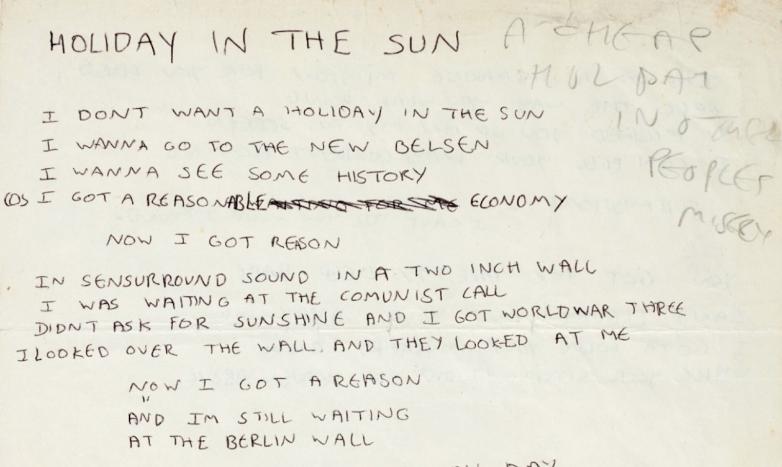 HOLIDAY IN THE SUN
A CHEAP
HOLIDAY
IN OTHER
PEOPLES
MISERY
I DONT WANT A HOLIDAY IN THE SUN
I WANNA GO TO THE NEW BELSEN
I WANNA SEE SOME HISTORY
COS I GOT A REASONABLE ECONOMY
NOW I GOT REASON
IN SENSURROUND SOUND IN A TWO INCH WALL
I WAS WAITING AT THE COMUNIST CALL
DIDNT ASK FOR SUNSHINE AND I GOT WORLDWAR THREE
I LOOKED OVER THE WALL. AND THEY LOOKED AT ME
NOW I GOT A REASON
"
AND IM STILL WAITING
AT THE BERLIN WALL